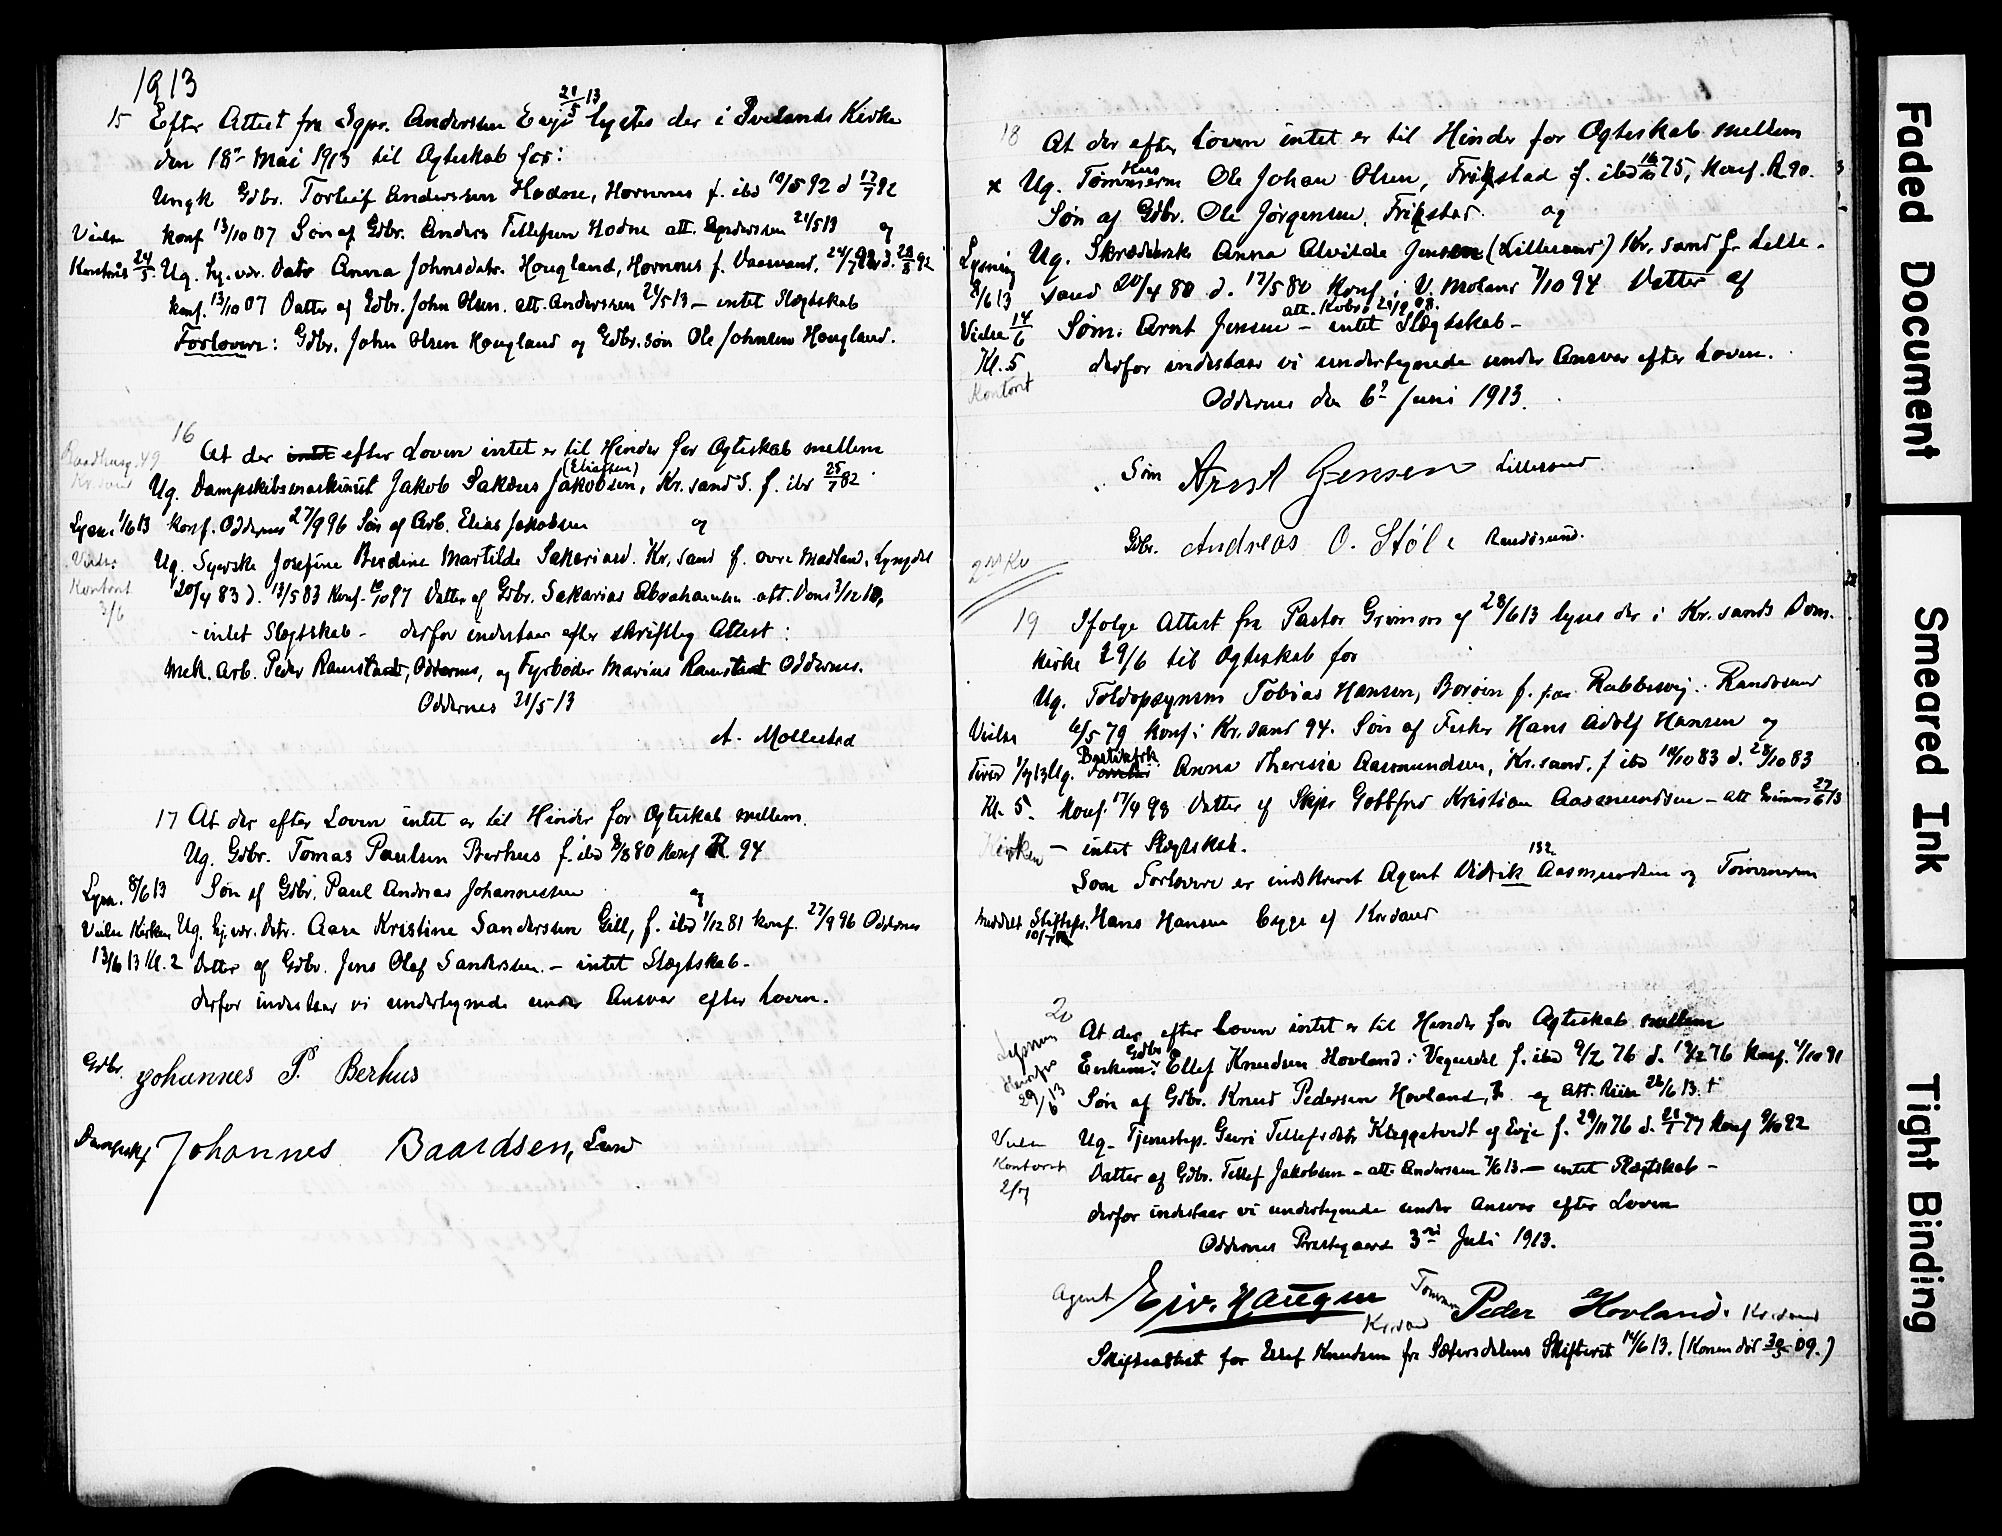 1913
15 Efter Attest fra Sgpr. Anderssen Evje 21/5 13 lystes der i Ivelands Kirke
den 18de Mai 1913 til Ægteskab for:
Ungk Gdbr. Torleif Anderssen Hodne, Hornnes f. ibd 10/5 92 d 17/7 92
Vielse konf 13/10 07 Søn af Gdbr. Anders Tellefsen Hodne att. Anderssen 21/5 13 og
Kontoret 24/5 Ug. hj.vær. Datr Anna Johnsdatr. Hougland, Hornnes f. Vaasvand, 24/7 92 d. 28/8 92
konf. 13/10 07 Datter af Gdbr. John Olsen. att. Anderssen 21/5 13 – intet Slægtskab
Forlovere: Gdbr. John Olsen Hougland og Gdbr. søn Ole Johnsen Hougland.
16
Raadhusg. 49
Kr.sand
At der intet efter Loven intet er til Hinder for Ægteskab mellem
Ug. Dampskibsmaskinist Jakob Sakæus Jakobsen (Eliassen), Kr. sand S. f. ibd 25/7 82
Lysn. 1/6 13 konf. Oddernes 27/9 96 Søn af Arb. Elias Jakobsen og
Vielse Ug. Syerske Josefine Berdine Martilde Sakariasd. Kr. sand f. øvre Madland, Lyngdal
Kontoret 20/4 83 d. 13/5 83 Konf. 10/10 97 Datter af Gdbr. Sakarias Abrahamsen att. Dons 3/12 10,
3/6
- intet Slægtskab - derfor indestaar efter skriftlig Attest:
Mek. Arb. Peder Ramstad, Oddernes, og Fyrbøder Marius Ramstad Oddernes.
Oddernes 31/5 - 13
A. Mollestad
17 At der efter Loven intet er til Hinder for Ægteskab mellem
Ug. Gdbr. Tomas Paulsen Berhus f. ibd 8/3 80 Konf R 94
Lysn. 8/6 13 Søn af Gdbr. Paul Andreas Johannessen og
Vielse Kirken Ug. hj.vær. Datr. Aase Kristine Sanderssen Gill, f. ibd 1/12 81 konf. 27/9 96 Oddernes
13/6 13 Kl. 2 Datter af Gdbr. Jens Olaf Sanderssen. – intet Slægtskab -
derfor indestaar vi undertegnede under Ansvar efter Loven.
Gdbr. Johannes P. Berhus
Johannes Baardsen, Lund
18
At der efter Loven intet er til Hinder for Ægteskab mellem
x Ug. Hus Tømmerm Ole Johan Olsen, Frikstad f. ibd 75, Konf. R 90.
Søn af Gdbr. Ole Jørgensen, Frikstad og
Lysning Ug. Skrædderske Anna Alvilde Jensen (Lillesand) Kr. sand f. Lille-
8/6 13 sand 20/4 80 d. 17/5 80 Konf. i V. Moland 7/10 94 Datter af
Vielse 14/6 Søm. Arnt Jensen – intet Slægtskab -
Kl. 5 derfor indestaar vi undertegnede under Ansvar efter Loven.
Kontoret
Oddernes den 6te Juni 1913.
Søm Arnt Jensen Lillesand
Gdbr. Andreas O. Støle Randøsund.
19 Ifølge Attest fra Pastor Grimsrs af 28/6 13 lyses der i Kr. sands Dom-
kirke 29/6 til Ægteskab for
Ug. Toldopsynsm Tobias Hansen, Borøen f. paa Rabbesvig. Randøsund
Vielse 6/5 79 konf i Kr. sand 94. Søn af Fisker Hans Adolf Hansen og
Tirsd 1/7 13 Ug. Butikfrk Anna Theresia Aasmundsen, Kr. sand. f ibd 10/10 83 d. 28/10 83
Kl. 5. Konf. 17/4 98 Datter af Skipr Gottfred Kristian Aasmundsen – att 27/6 13
Kirken – intet Slægtskab.
Som Forlovere er indskrevet Agent Didrik Aasmundsen og Tømmerm
meddelt Stiftspr. Hans Hansen begge af Kr.sand
20
At der efter Loven intet er til Hinder for Ægteskab mellem
Enkem. Gdbr Ellef Knudsen Hovland i Vegusdal f. ibd 9/2 76 d. 19/2 76 Konf. 4/10 91
29/6 13 Søn af Gdbr. Knud Pedersen Hovland, og Att. Riise 26/6 13.
Vielse Ug. Tjenestep. Guri Tellefsdatr Kleggetvedt af Evje f. 29/11 76 d. 21/1 77 Konf 9/10 92
Kontoret Datter af Gdbr. Tellef Jakobsen – att. Anderssen 7/6 13 – intet Slægtskab –
2/7
derfor indestaar vi undertegnede under Ansvar efter Loven
Oddernes Prestegaard 3die Juli 1913.
Agent Eiv. Haugen Kr.sand Tømmerm Peder Hovland. Kr.sand
Skifteattest for Ellef Knudsen fra Sætersdalens Skifteret 14/6 13. (Konen død 30/3 09.)
Faded Document
Smeared Ink
Tight Binding